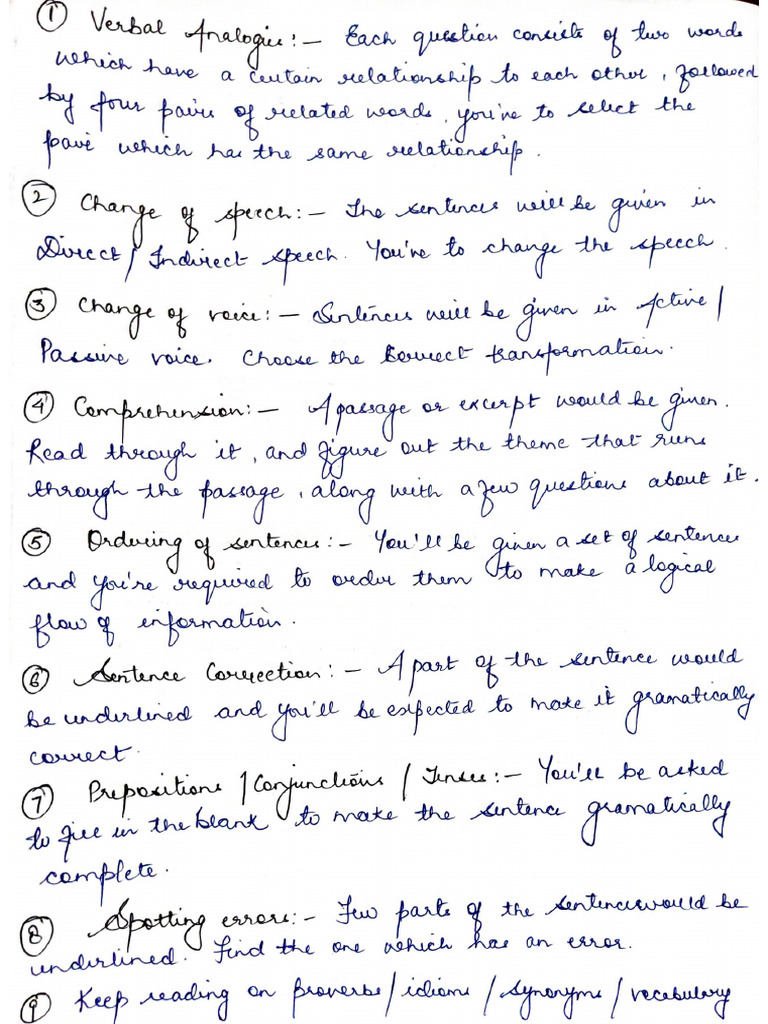 ① Verbal Analogies:- Each question consists of two words
which have a certain relationship to each other, followed
by four pairs of related words, you've to select the
pair which has the same relationship.
② Change of speech:- The sentences will be given in
Direct/Indirect speech. You've to change the speech.
③ Change of voice:- Sentences will be given in Active/
Passive voice. Choose the correct transformation.
④ Comprehension:- A passage or excerpt would be given.
Read through it, and figure out the theme that runs
through the passage, along with a few questions about it.
⑤ Ordering of sentences:- You'll be given a set of sentences
and you're required to order them to make a logical
flow of information.
⑥ Sentence Correction:- A part of the sentence would
be underlined and you'll be expected to make it gramatically
correct.
⑦ Prepositions/Conjunctions/Tenses:- You'll be asked
to fill in the blank to make the sentence gramatically
complete.
⑧ Spotting errors:- Few parts of the sentences would be
underlined. Find the one which has an error.
⑨ Keep reading on proverbs/idioms/synonyms/vocabulary